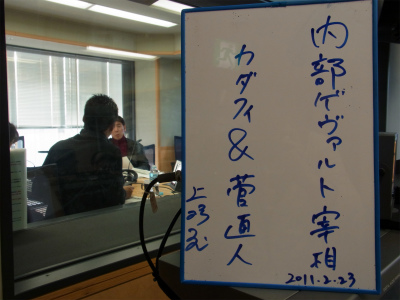 内部ゲヴァルト宰相
カダフィ&菅直人
2011.2.23